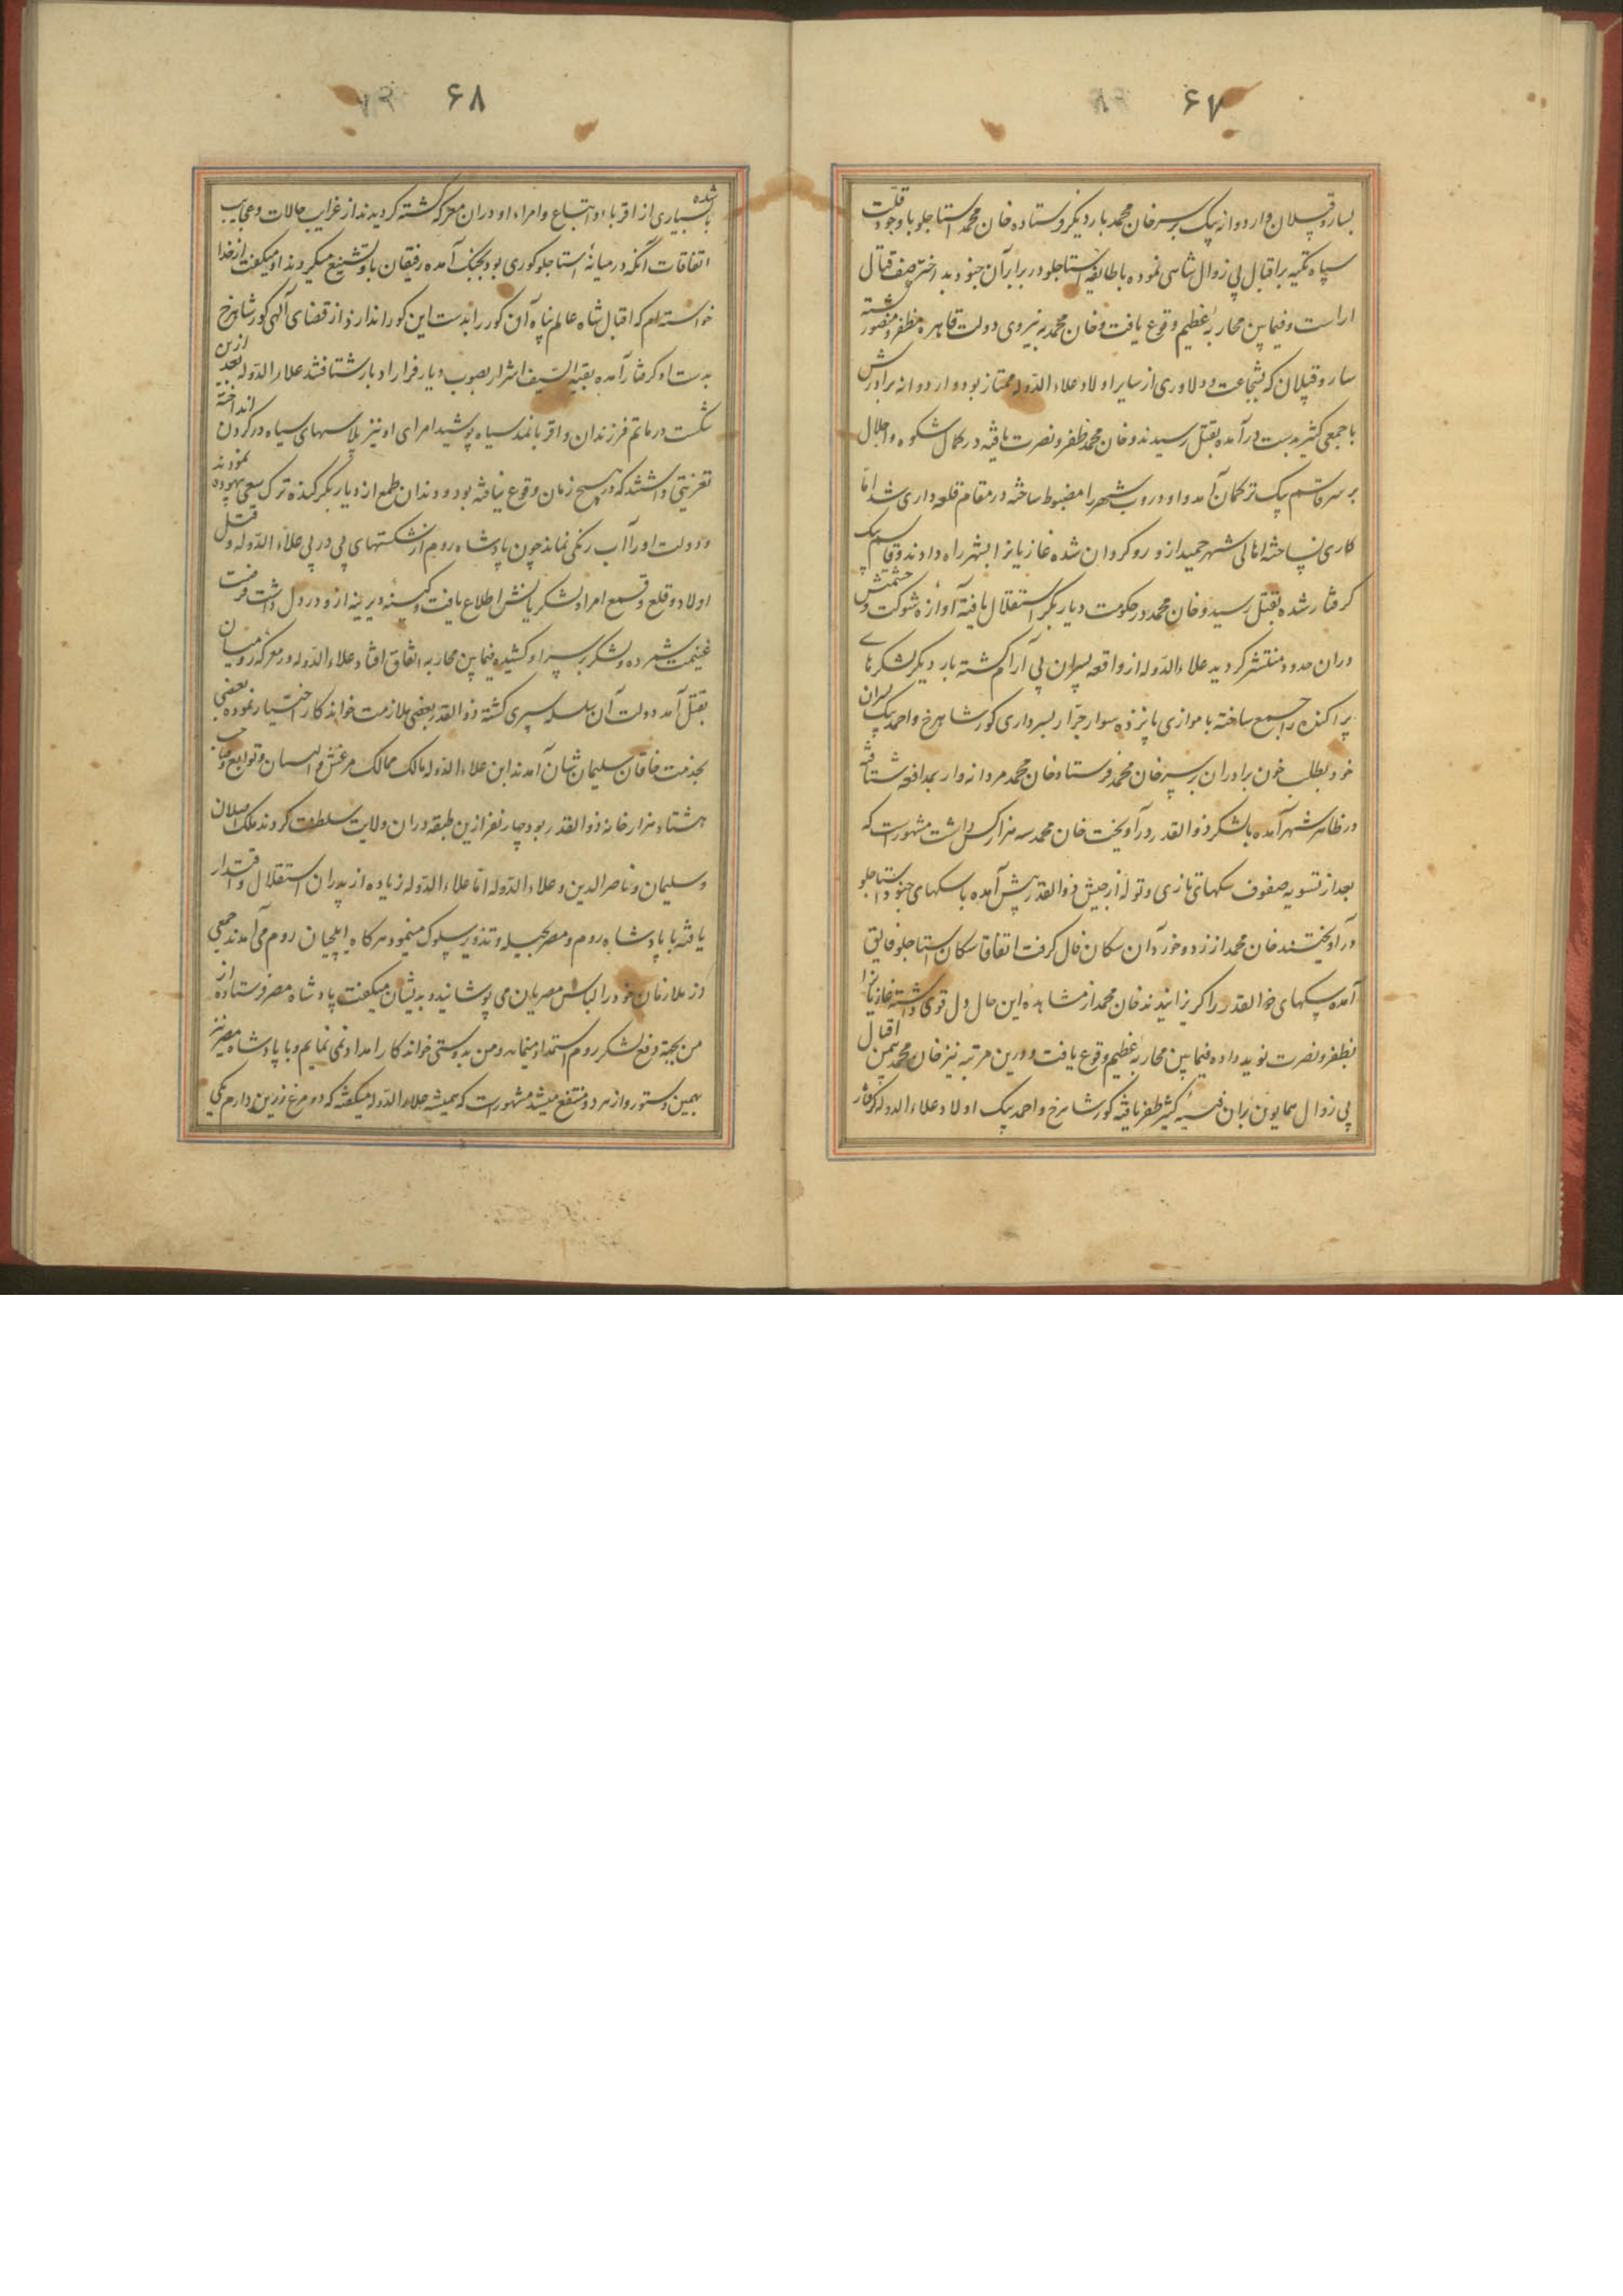 ۶۷
بسارو قپلان و اردوانه بیک بر سر خان محمد بار دیگر فرستاده خان محمد استاجلو با وجود قلت
سپاه تکیه بر اقبال بی زوال شاهی نموده با طایفه استاجلو در برابر آن جنود بد اختر صف قتال
اراست و فیمابین محاربه عظیم وقوع یافت و خان محمد به نیروی دولت قاهره مظفر و منصور گشته
سارو قپلان که بشجاعت و دلاوری از سایر اولاد علاء الدوله ممتاز بود و اردوانه برادرش
با جمعی کثیر بدست درآمده بقتل رسیدند و خان محمد ظفر و نصرت یافته در کمال شکوه و اجلال
بر سر قاسم بیک ترکمان آمد و او دروب شهر را مضبوط ساخته در مقام قلعه داری شد اما
کاری نساخته اهالی شهر حمید ازو رو گردان شده غازیانرا بشهر راه دادند و قاسم بیک
گرفتار شده بقتل رسید و خان محمد در حکومت دیار بکر استقلال یافته آوازه شوکت و حشمتش
دران حدود منتشر گردید علاء الدوله از واقعه پسران بی آرام گشته بار دیگر لشکرهای
پراکنده را جمع ساخته با موازی پانزده سوار جرار بسرداری کور شاهرخ و احمد بیک پسران
خود بطلب خون برادران بر سر خان محمد فرستاد و خان محمد مردانه وار بمدافعه شتافته
در ظاهر شهر آمده با لشکر ذوالقدر درآویخت خان محمد سه هزار کس داشت مشهور است که
بعد از تسویه صفوف سکهای تازی و توله از جیش ذوالقدر پیش آمده با سکهای جنود استاجلو
درآویختند خان محمد از زد و خورد آن سکان فال گرفت اتفاقا سکان استاجلو فایق
آمده سکهای ذوالقدر را گریزانیدند خان محمد از مشاهده این حال دل قوی داشته غازیانرا
بظفر و نصرت نوید داده فیمابین محاربه عظیم وقوع یافت و درین مرتبه نیز خان محمد بیمن اقبال
بی زوال همایون بران فیه کثیر ظفر یافته کور شاهرخ و احمد بیک اولاد علاء الدوله گرفتار
۶۸
شده بابسیاری از اقربا و اتباع و امراء او دران معرکه کشته گردیدند از غرایب حالات و عجایب
اتفاقات آنکه در میانه استاجلو کوری بود بجنگ آمده رفیقان باو تشنیع میکردند او میگفت از خدا
خواسته ام که اقبال شاه عالم پناه آن کور را بدست این کور اندازد از قضای آلهی کور شاهرخ
بدست او گرفتار آمده بقیة السیف اشرار بصوب دیار فرار ادبار شتافتند علاء الدوله بعد ازین
شکست در ماتم فرزندان و اقربا نمد سیاه پوشید امرای او نیز پلاسهای سیاه در گردن انداخته
تعزیتی داشتند که در هیچ زمان وقوع نیافته بود و دندان طمع از دیار بکر کنده ترک سعی بیهوده نمودند
و دولت او را آب رنگی نماند چون پادشاه روم از شکستهای پی در پی علاء الدوله و قتل
اولاد و قلع و قمع امرا و لشکریانش اطلاع یافت و کینه دیرینه ازو در دل داشت فرصت
غنیمت شمرده و لشکر بر سر او کشیده فیمابین محاربه اتفاق افتاد علاء الدوله در معرکه رومیان
بقتل آمد دولت آن سلسله سپری گشته ذوالقدر بعضی ملازمت خواندکار اختیار نموده بعضی
بخدمت خاقان سلیمان شان آمدند ابن علاء الدوله مالک ممالک مرعش و البستان و توابع و صاحب
هشتاد هزار خانه ذوالقدر بود چهار نفر ازین طبقه دران ولایت سلطنت کردند ملک اصلان
و سلیمان و ناصر الدین و علاء الدوله اما علاء الدوله زیاده از پدران استقلال و اقتدار
یافته با پادشاه روم و مصر بحیله و تذویر سلوک مینمود هرگاه ایلچیان روم می آمدند جمعی
از ملازمان خود را لباس مصریان می پوشانید و بدیشان میگفت پادشاه مصر فرستاده از
من بجهة دفع لشکر روم استمداد مینماید و من بدوستی خواندکار امداد نمی نمایم و با پادشاه مصر نیز
بهمین دستور و از هر دو منتفع میشد مشهور است که همیشه علاء الدوله میگفته که دو مرغ زرین دارم یکی